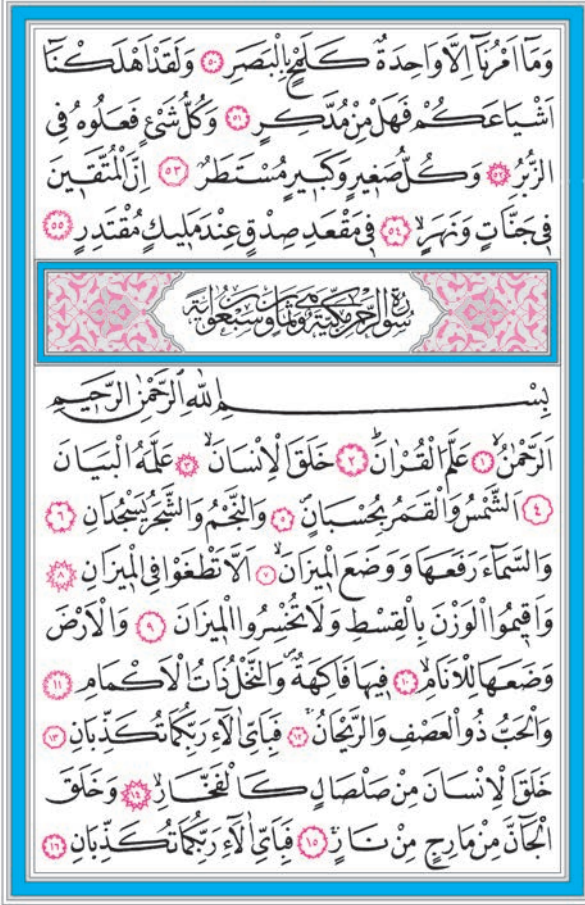 وَمَٓا اَمْرُنَٓا اِلَّا وَاحِدَةٌ كَلَمْحٍ بِالْبَصَرِ ﴿٥٠﴾ وَلَقَدْ اَهْلَكْنَٓا
اَشْيَاعَكُمْ فَهَلْ مِنْ مُدَّكِرٍ ﴿٥١﴾ وَكُلُّ شَیْءٍ فَعَلُوهُ فِی
الزُّبُرِ ﴿٥٢﴾ وَكُلُّ صَغِيرٍ وَكَبِيرٍ مُسْتَطَرٌ ﴿٥٣﴾ اِنَّ الْمُتَّقِينَ
فِی جَنَّاتٍ وَنَهَرٍۙ ﴿٥٤﴾ فِی مَقْعَدِ صِدْقٍ عِنْدَ مَلِيكٍ مُقْتَدِرٍ ﴿٥٥﴾
سورة الرحمن مكية وهي ثمان وسبعون اية
بِسْمِ اللّٰهِ الرَّحْمٰنِ الرَّحِيمِ
اَلرَّحْمٰنُۙ ﴿١﴾ عَلَّمَ الْقُرْاٰنَۜ ﴿٢﴾ خَلَقَ الْاِنْسَانَۙ ﴿٣﴾ عَلَّمَهُ الْبَيَانَ
﴿٤﴾ اَلشَّمْسُ وَالْقَمَرُ بِحُسْبَانٍۖ ﴿٥﴾ وَالنَّجْمُ وَالشَّجَرُ يَسْجُدَانِ ﴿٦﴾
وَالسَّمَٓاءَ رَفَعَهَا وَوَضَعَ الْمِيزَانَۙ ﴿٧﴾ اَلَّا تَطْغَوْا فِی الْمِيزَانِ ﴿٨﴾
وَاَقِيمُوا الْوَزْنَ بِالْقِسْطِ وَلَا تُخْسِرُوا الْمِيزَانَ ﴿٩﴾ وَالْاَرْضَ
وَضَعَهَا لِلْاَنَامِۙ ﴿١٠﴾ فِيهَا فَاكِهَةٌۖ وَالنَّخْلُ ذَاتُ الْاَكْمَامِ ﴿١١﴾
وَالْحَبُّ ذُو الْعَصْفِ وَالرَّيْحَانُۚ ﴿١٢﴾ فَبِاَیِّ اٰلَٓاءِ رَبِّكُمَا تُكَذِّبَانِ ﴿١٣﴾
خَلَقَ الْاِنْسَانَ مِنْ صَلْصَالٍ كَالْفَخَّارِۙ ﴿١٤﴾ وَخَلَقَ
الْجَٓانَّ مِنْ مَارِجٍ مِنْ نَارٍۚ ﴿١٥﴾ فَبِاَیِّ اٰلَٓاءِ رَبِّكُمَا تُكَذِّبَانِ ﴿١٦﴾